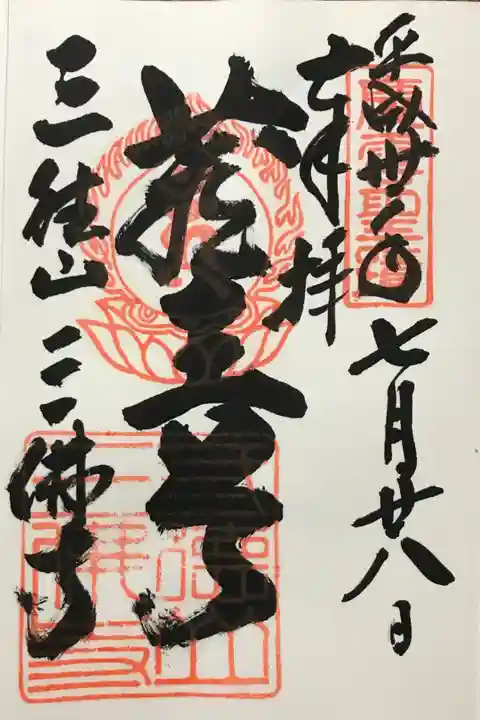 平成卅年七月廿八日
奉拝
蔵王堂
三徳山三佛寺